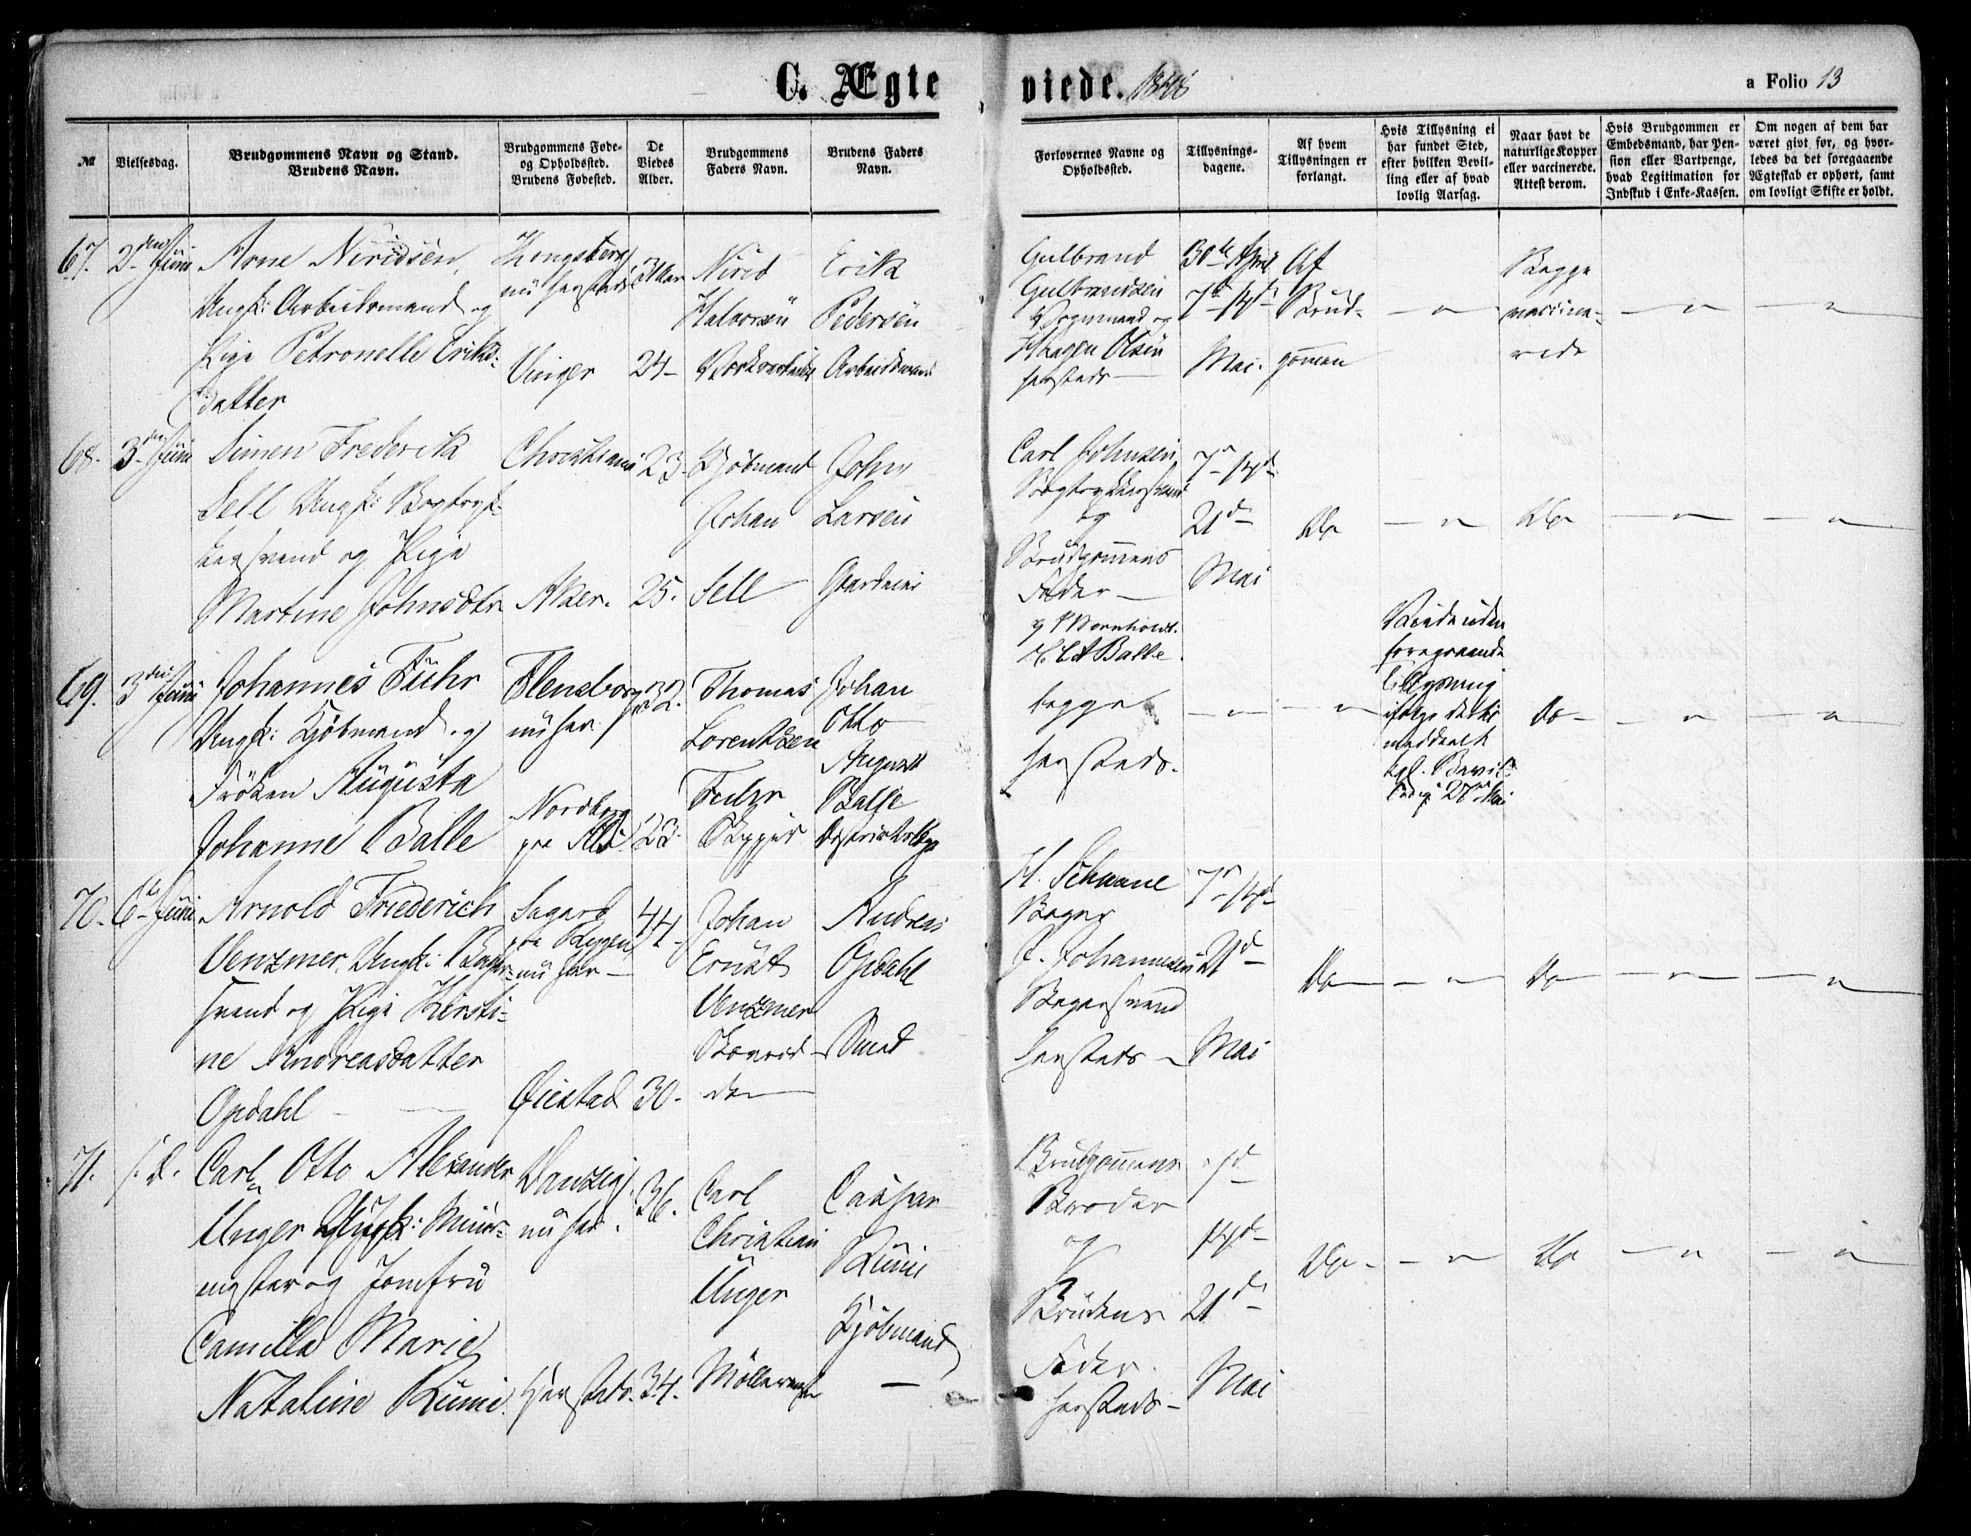 C. Ægte viede. 1848
a Folio 13
№
Vielsesdag.
Brudgommens Navn og Stand.
Brudens Navn.
Brudgommens Føde-
og Opholdssted.
Brudens Fødested.
De
Viedes
Alder.
Brudgommens
Faders Navn.
Brudens Faders
Navn.
Forlovernes Navne og
Opholdssted.
Tillysnings-
dagene.
Af hvem
Tillysningen er
forlangt.
Hvis Tillysning ei
har fundet Sted,
efter hvilken Bevil-
ling eller af hvad
lovlig Aarsag.
Naar havt de
naturlige Kopper
eller vaccinerede.
Attest derom.
Hvis Brudgommen er
Embedsmand, har Pen-
sion eller Vartpenge,
hvad Legitimation for
Indskud i Enke-Kassen.
Om nogen af dem har
været givt før, og hvor-
ledes da det foregaaende
Ægteskab er ophørt, samt
om lovligt Skifte er holdt.
67.
2den Juni
Arne Niridsen,
Ungk: Arbeidsmand og
Pige Petronelle Eriks-
datter
Kongsberg
nu hersteds
Vinger
31 Aar
24
Nirid
Halvorsen
Erik
Pedersen
Arbeidsmand
Gulbrand
Gulbrandsen
Vognmand og
Haagen Olsen
hersteds
30te April
7de 14de
Mai.
Af
Brud-
gommen
Begge
vaccine-
rede
68.
3den Juni
Simen Frederik
Sell Ungk: Bogtryk-
kersvend og Pige
Martine Johnsdtr
Christiania
Aker.
23
25.
Kjöbmand
Johan
Sell
John
Larsen
Gardmand
Carl Johnsen
Bogtrykkersvend
og
Brudgommens
Fader
7de 14de
21de
Mai
Do
Do
69.
3die Juni
Johannes Fuhr
Ungk: Kjöbmand og
Fröken Augusta
Johanne Balle
Flensborg
nu her
Nordborg
paa Als
32.
23.
Thomas
Lorentzen
Fuhr
Skipper
Johan
Otto
August
Balle
Districtslæge
Balle
begge
hersteds.
Viede uden
foregaaende
Tillysning
ifølge dertil
meddeelt
kgl. Bevil-
ling 27de Mai
Do
70.
6te Juni
Arnold Friederich
Venzmer, Ungk: Bager-
svend og Pige Kirsti-
ne Andreasdatter
Opdahl
Sagard
paa Rygen
nu her
Øiestad
44
30.
Johan
Ernst
Venzmer
Andreas
Opdahl
Smed
H. Schwane
Bager
J. Johannesen
Bagersvend
hersteds
7de 14de
21de
Mai
Do
Do
71.
s. D.
Carl Otto Alexander
Unger Ungk: Muur-
mester og Jomfru
Camilla Marie
Nataline Rumi
Danzig
nu her.
Hersteds.
36.
34.
Carl
Christian
Unger
Caspar
Rumi
Kjöbmand
Brudgommens
Broder
og
Brudens
Fader
hersteds
7de
14de
21de
Mai
Do
Do